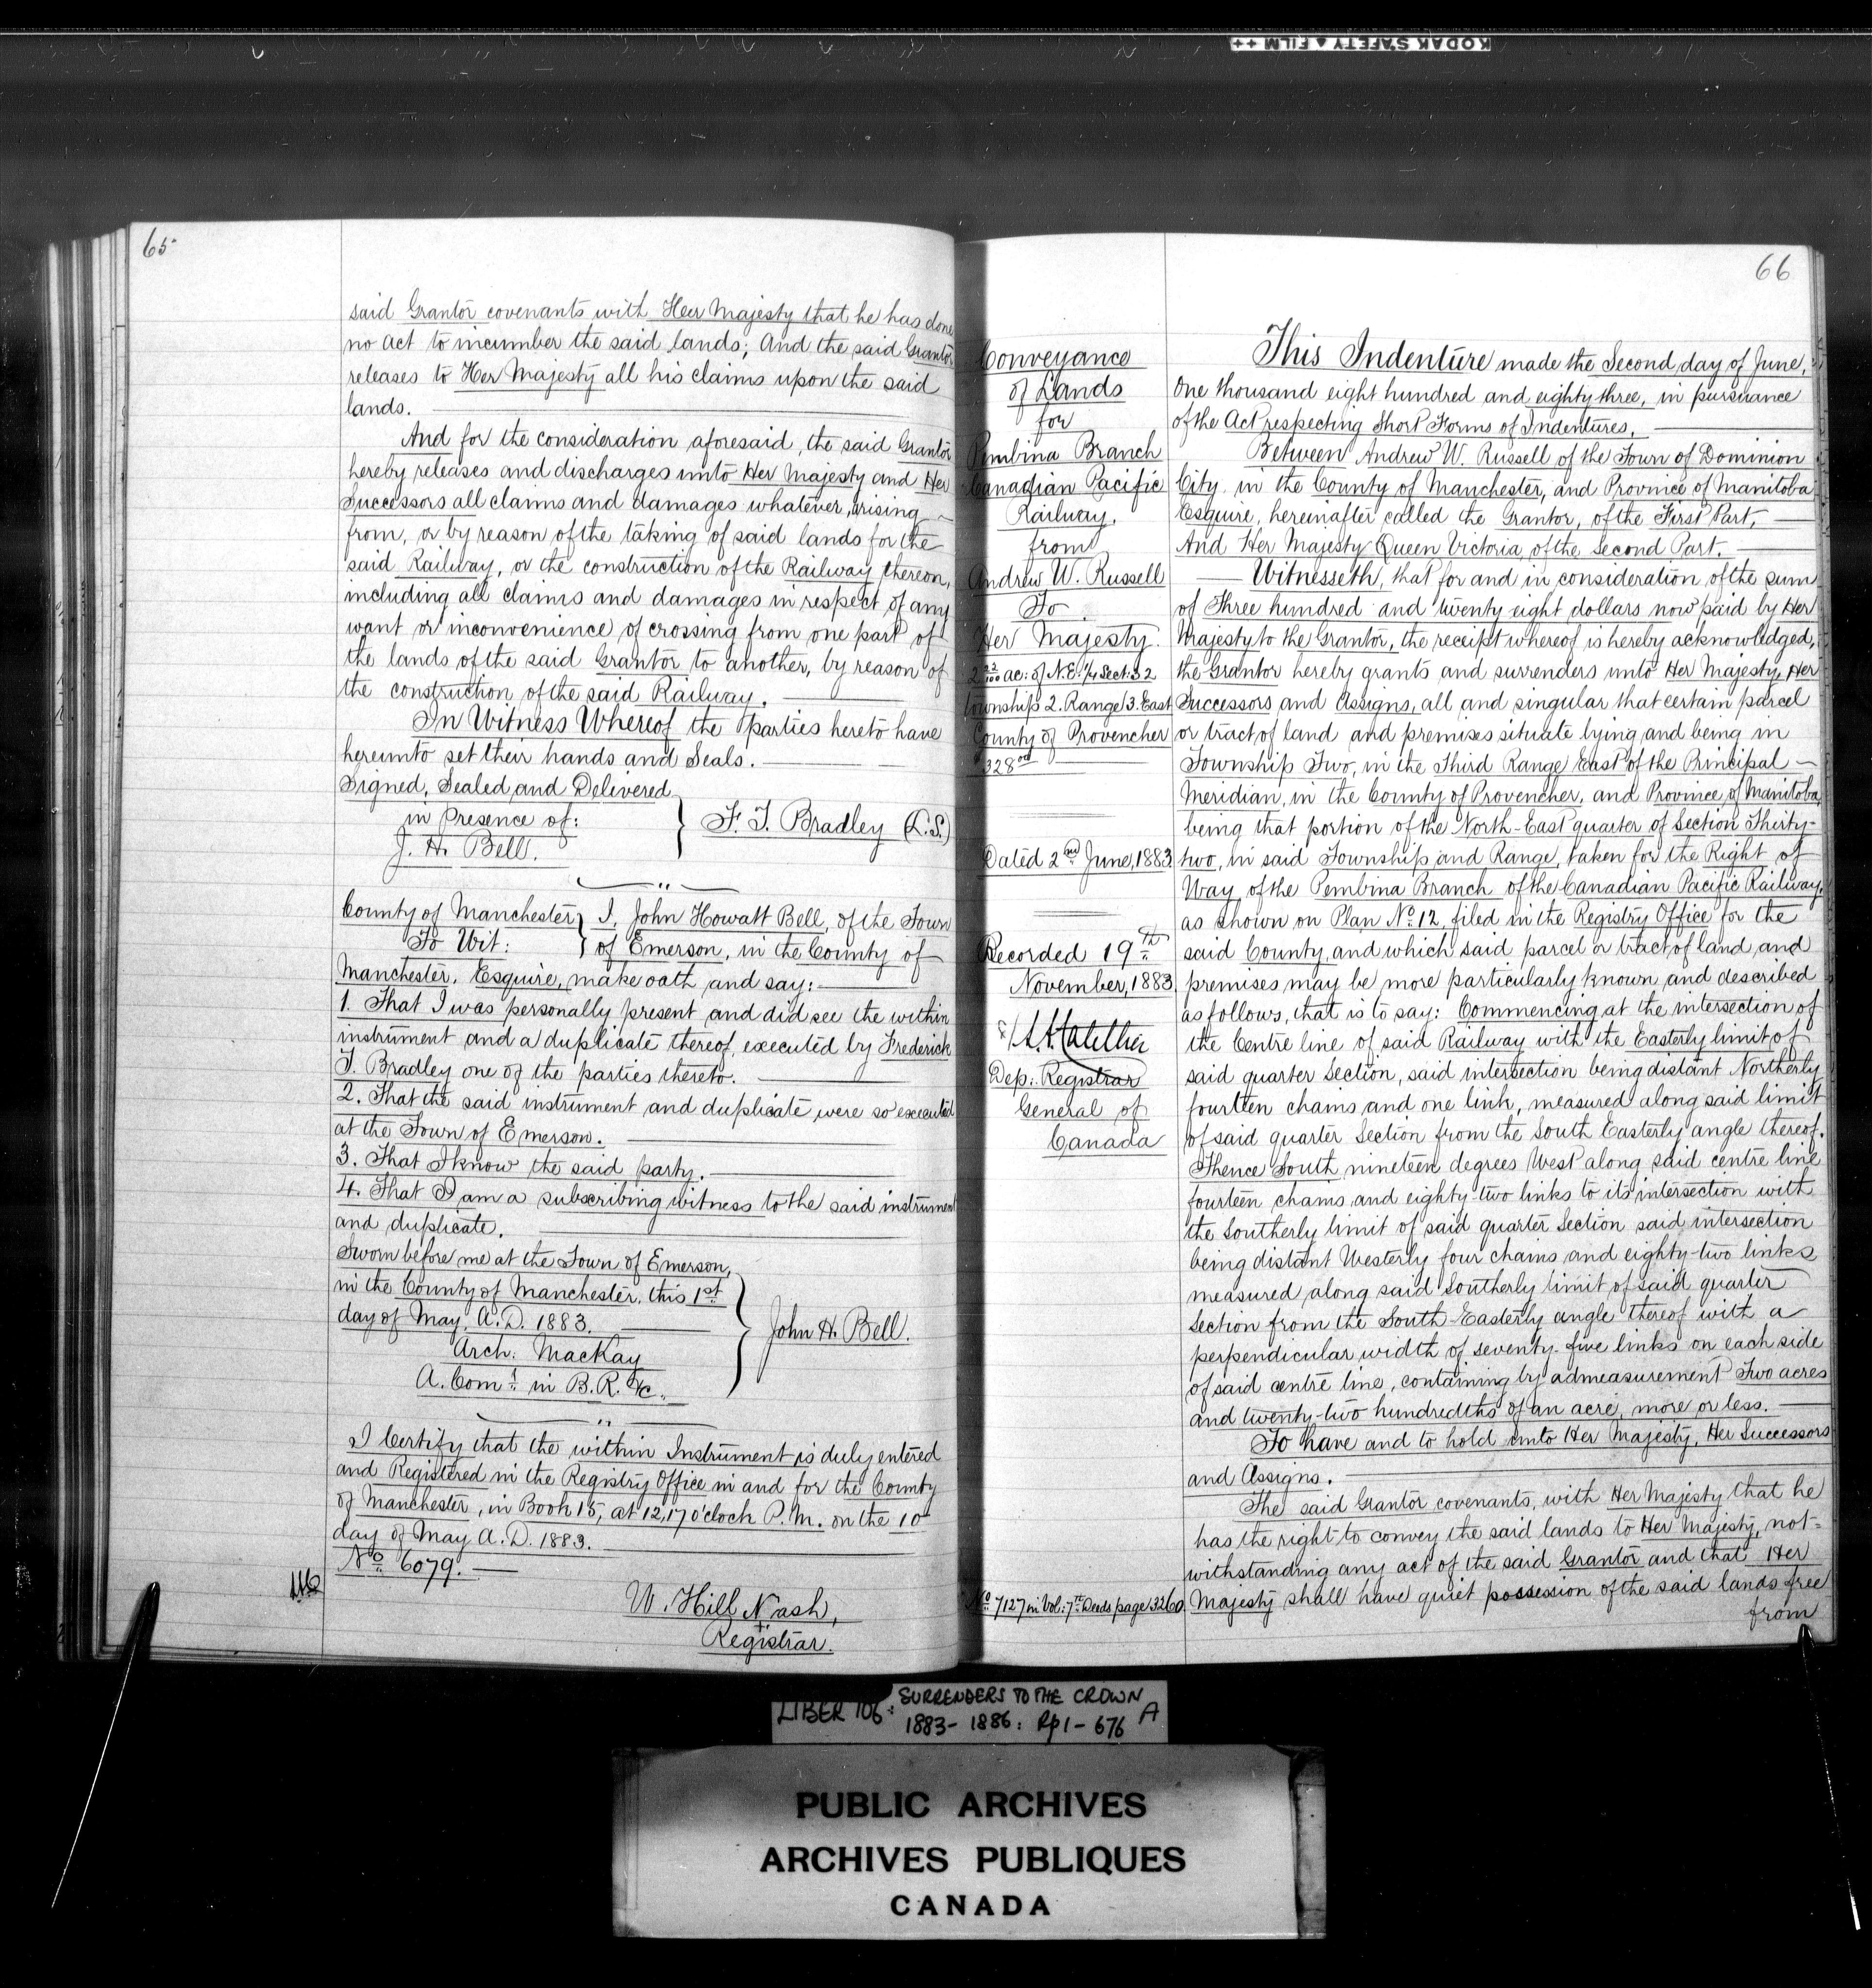 KODAK SAFETY A FILM ++
65
said Grantor covenants with Her Majesty that he has done
no act to incumber the said lands; And the said Grantor
releases to Her Majesty all his claims upon the said
lands.
And for the consideration aforesaid, the said Grantor
hereby releases and discharges unto Her Majesty and Her
Successors all claims and damages whatever, arising
from, or by reason of the taking of said lands for the
said Railway, or the construction of the Railway thereon,
including all claims and damages in respect of any
want or inconvenience of crossing from one part of
the lands of the said Grantor to another, by reason of
the construction of the said Railway.
In Witness Whereof the parties hereto have
hereunto set their hands and Seals.
Signed, Sealed and Delivered
in presence of:
J. H. Bell.
F. T. Bradley (L.S.)
County of Manchester
To Wit:
I, John Howatt Bell, of the Town
of Emerson, in the County of
Manchester, Esquire, make oath and say:
1. That I was personally present and did see the within
instrument and a duplicate thereof, executed by Frederick
T. Bradley one of the parties thereto.
2. That the said instrument and duplicate were so executed
at the Town of Emerson.
3. That I know the said party.
4. That I am a subscribing witness to the said instrument
and duplicate.
Sworn before me at the Town of Emerson,
in the County of Manchester, this 1st
day of May, A.D. 1883.
Arch: MacKay
A. Comr. in B.R. &c.
John H. Bell.
I Certify that the within Instrument is duly entered
and Registered in the Registry Office in and for the County
of Manchester, in Book 15, at 12,17 o'clock P.M. on the 10
day of May A.D. 1883.
No. 6079.
W. Hill Nash,
Registrar.
66
Conveyance
of Lands
for
Pembina Branch
Canadian Pacific
Railway.
from
Andrew W. Russell
To
Her Majesty.
2 22/100 ac: of N.E. 1/4 Sect: 32
Township 2. Range 3. East
County of Provencher
$328 00
Dated 2nd June, 1883
Recorded 19th
November, 1883
Dep: Registrar
General of
Canada
No. 7127 in Vol: 7th Deeds page 3260
This Indenture made the Second day of June,
One thousand eight hundred and eighty three, in pursuance
of the Act respecting Short Forms of Indentures.
Between Andrew W. Russell of the Town of Dominion
City in the County of Manchester, and Province of Manitoba
Esquire, hereinafter called the Grantor, of the First Part,
And Her Majesty Queen Victoria, of the Second Part.
Witnesseth, that for and in consideration of the sum
of Three hundred and twenty eight dollars now paid by Her
Majesty to the Grantor, the receipt whereof is hereby acknowledged,
the Grantor hereby grants and surrenders unto Her Majesty, Her
Successors and Assigns, all and singular that certain parcel
or tract of land and premises situate lying and being in
Township Two, in the Third Range East of the Principal
Meridian, in the County of Provencher, and Province of Manitoba,
being that portion of the North-East quarter of Section Thirty-
two, in said Township and Range, taken for the Right of
Way of the Pembina Branch of the Canadian Pacific Railway,
as shown on Plan No. 12, filed in the Registry Office for the
said County, and which said parcel or tract of land and
premises may be more particularly known and described
as follows, that is to say: Commencing at the intersection of
the Centre line of said Railway with the Easterly limit of
said quarter Section, said intersection being distant Northerly
fourteen chains and one link, measured along said limit
of said quarter Section from the South Easterly angle thereof.
Thence South nineteen degrees West along said centre line
fourteen chains and eighty-two links to its intersection with
the Southerly limit of said quarter Section said intersection
being distant Westerly four chains and eighty-two links
measured along said Southerly limit of said quarter
Section from the South-Easterly angle thereof with a
perpendicular width of seventy-five links on each side
of said centre line, containing by admeasurement Two acres
and twenty-two hundredths of an acre, more or less.
To have and to hold unto Her Majesty, Her Successors
and Assigns.
The said Grantor covenants, with Her Majesty that he
has the right to convey the said lands to Her Majesty, not=
withstanding any act of the said Grantor and that Her
Majesty shall have quiet possession of the said lands free
from
LIBER 106: SURRENDERS TO THE CROWN A
1883-1886: Pp 1-676
PUBLIC ARCHIVES
ARCHIVES PUBLIQUES
CANADA